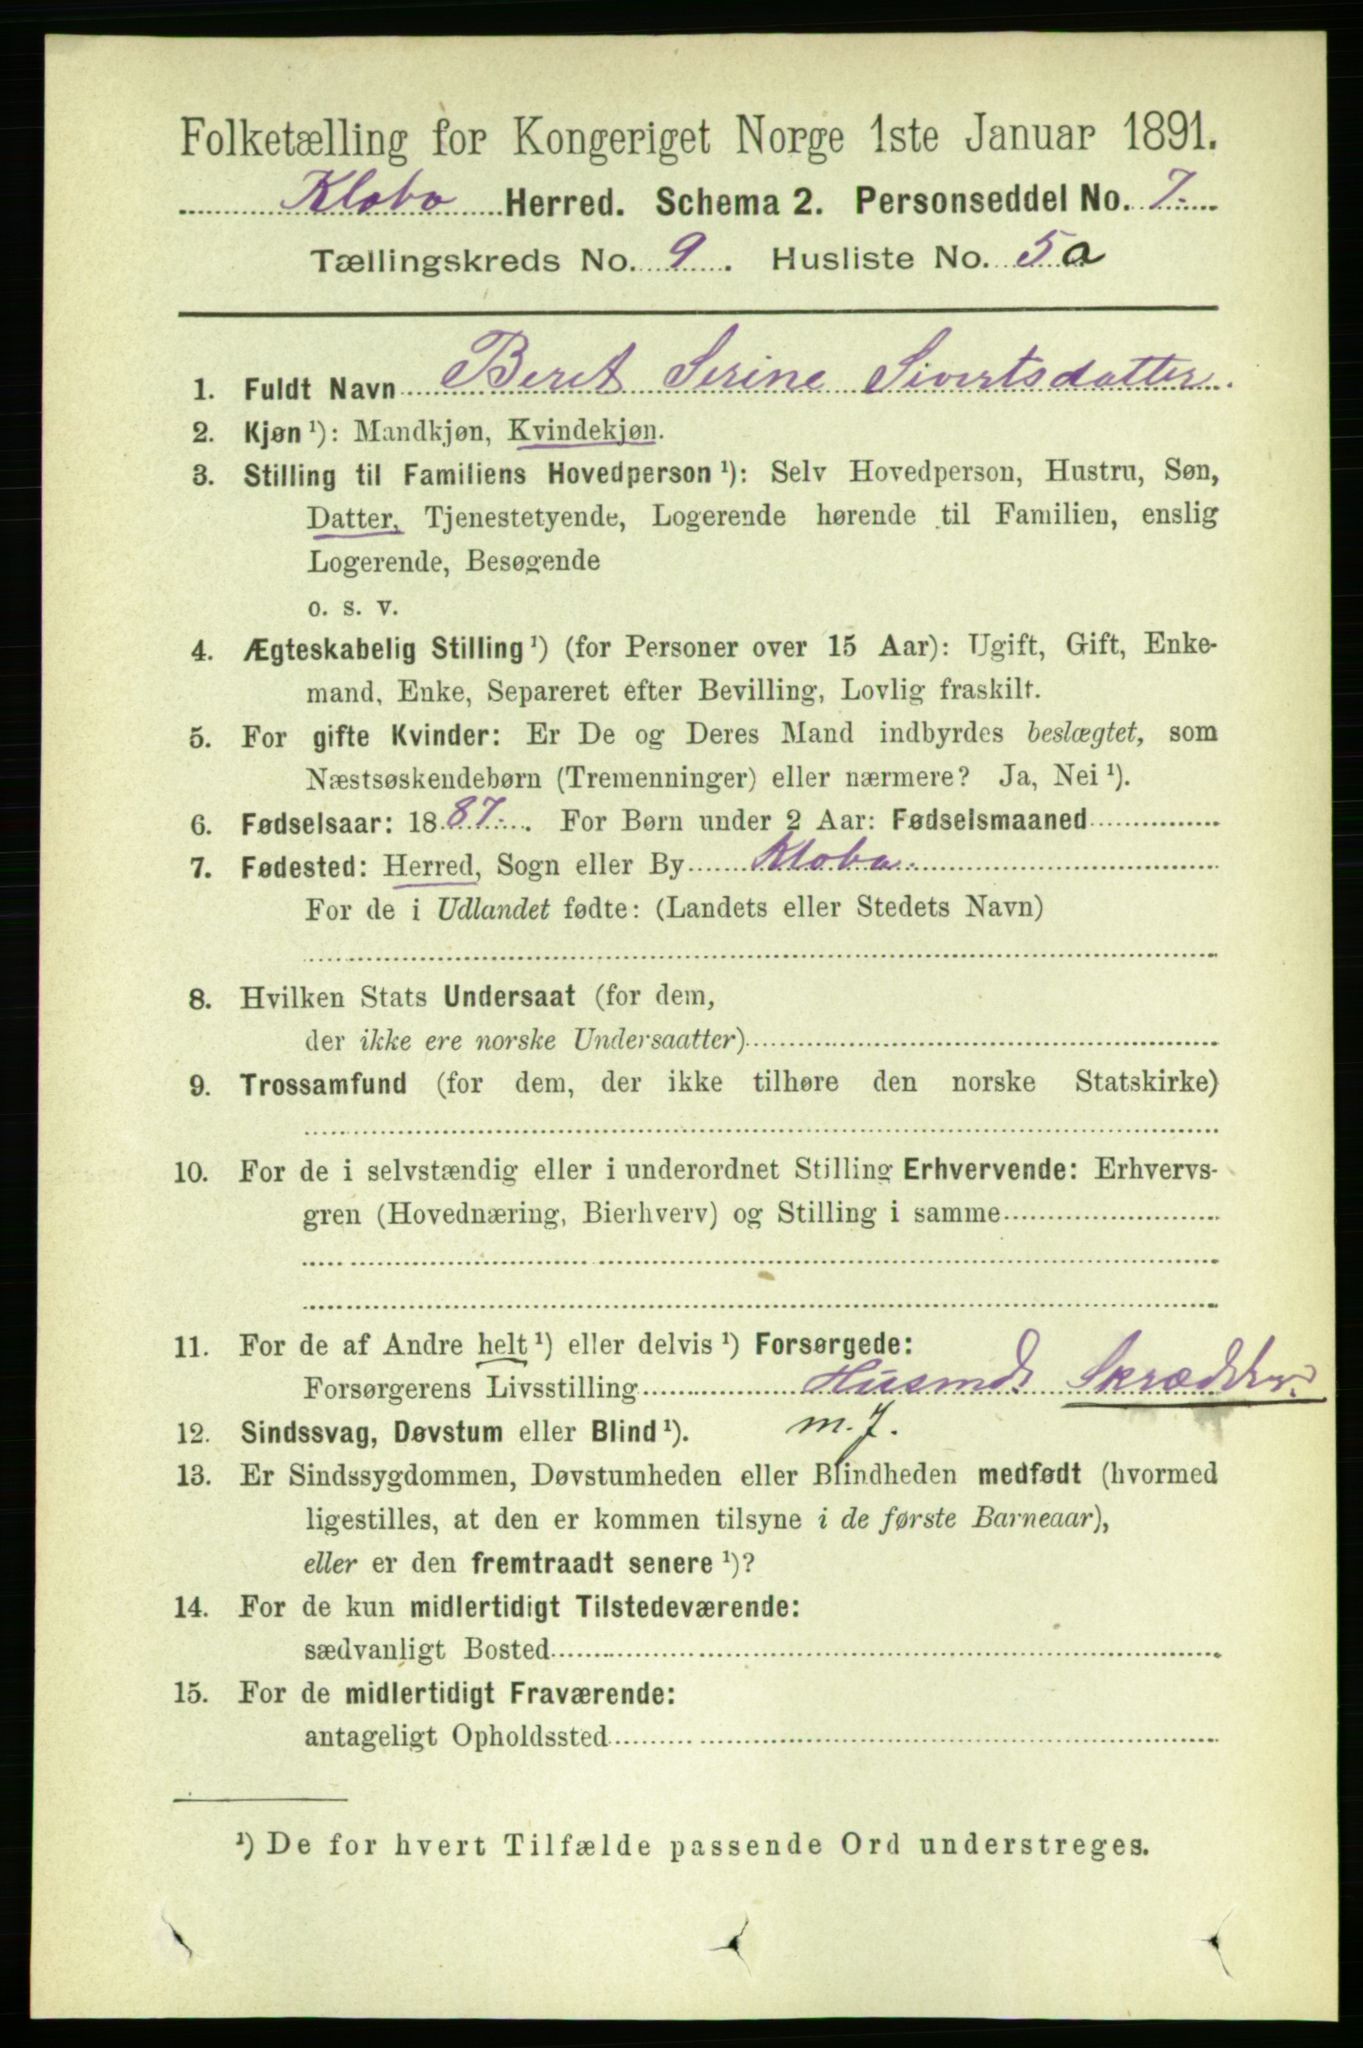 Folketælling for Kongeriget Norge 1ste Januar 1891.
Klæbo Herred. Schema 2. Personseddel No. 7.
Tællingskreds No. 9. Husliste No. 5a
1. Fuldt Navn Beret Serine Sivertsdatter.
2. Kjøn ¹): Mandkjøn, Kvindekjøn.
3. Stilling til Familiens Hovedperson ¹): Selv Hovedperson, Hustru, Søn,
Datter, Tjenestetyende, Logerende hørende til Familien, enslig
Logerende, Besøgende
o. s. v.
4. Ægteskabelig Stilling ¹) (for Personer over 15 Aar): Ugift, Gift, Enke-
mand, Enke, Separeret efter Bevilling, Lovlig fraskilt.
5. For gifte Kvinder: Er De og Deres Mand indbyrdes beslægtet, som
Næstsøskendebørn (Tremenninger) eller nærmere? Ja, Nei ¹).
6. Fødselsaar: 1887. For Børn under 2 Aar: Fødselsmaaned
7. Fødested: Herred, Sogn eller By Klæbo.
For de i Udlandet fødte: (Landets eller Stedets Navn)
8. Hvilken Stats Undersaat (for dem,
der ikke ere norske Undersaatter)
9. Trossamfund (for dem, der ikke tilhøre den norske Statskirke)
10. For de i selvstændig eller i underordnet Stilling Erhvervende: Erhvervs-
gren (Hovednæring, Bierhverv) og Stilling i samme
11. For de af Andre helt ¹) eller delvis ¹) Forsørgede:
Forsørgerens Livsstilling Husmd Skrædder.
12. Sindssvag, Døvstum eller Blind ¹). m. J.
13. Er Sindssygdommen, Døvstumheden eller Blindheden medfødt (hvormed
ligestilles, at den er kommen tilsyne i de første Barneaar),
eller er den fremtraadt senere ¹)?
14. For de kun midlertidigt Tilstedeværende:
sædvanligt Bosted
15. For de midlertidigt Fraværende:
antageligt Opholdssted
¹) De for hvert Tilfælde passende Ord understreges.